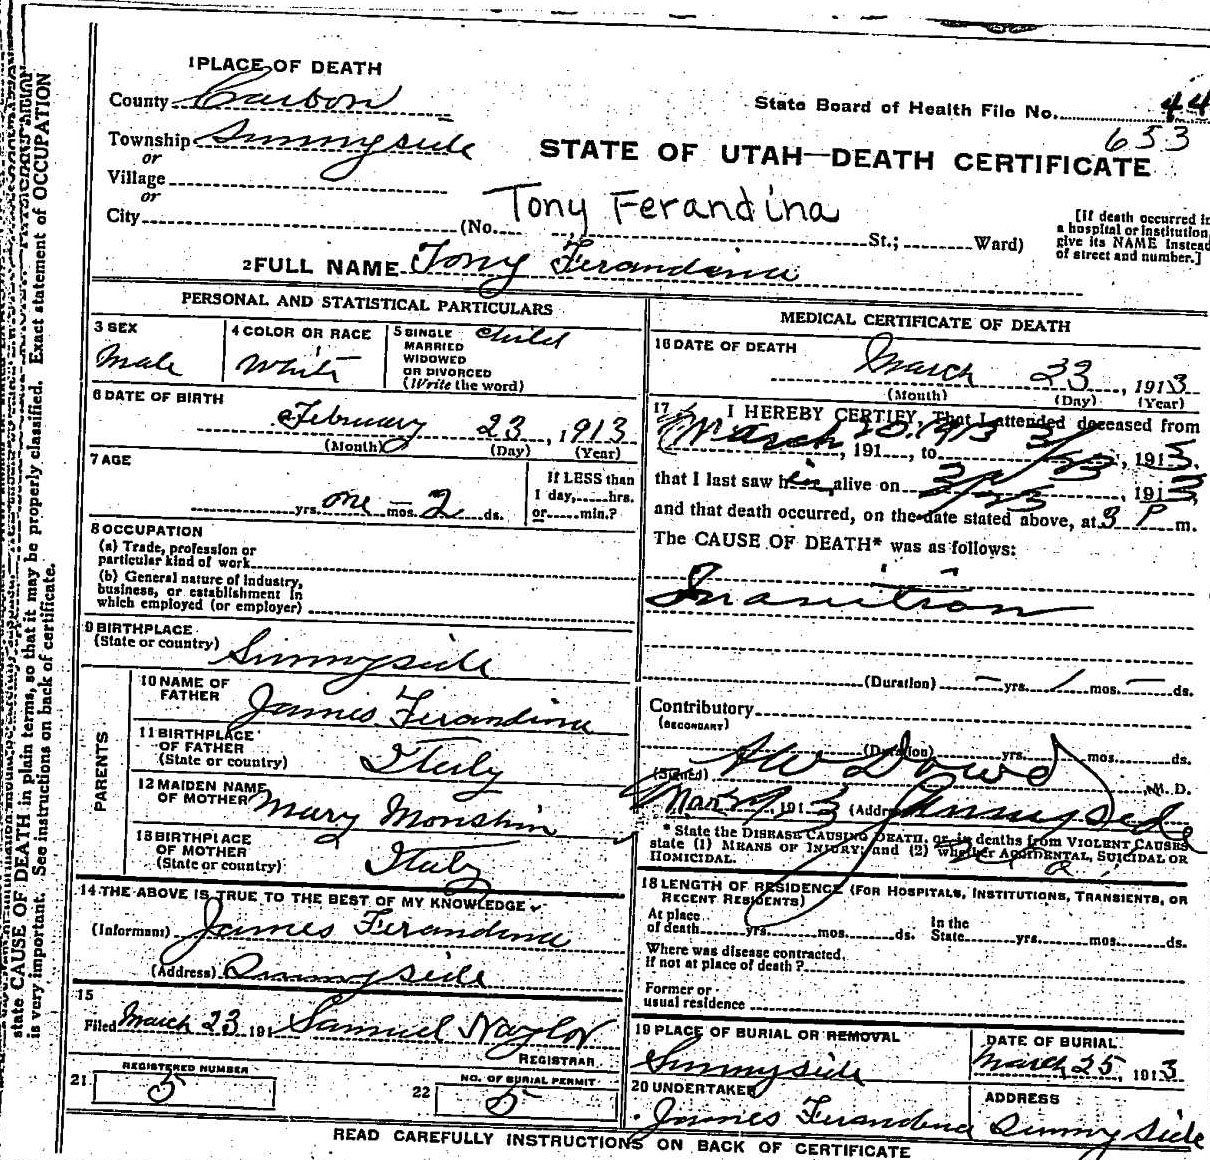 1 PLACE OF DEATH
County Carbon
State Board of Health File No. 44
653
Township Sunnyside
or
STATE OF UTAH—DEATH CERTIFICATE
Village
or
City (No. Tony Ferandina St.; Ward)
[If death occurred in
a hospital or institution,
give its NAME instead
of street and number.]
2 FULL NAME Tony Ferandina
PERSONAL AND STATISTICAL PARTICULARS
3 SEX
Male
4 COLOR OR RACE
White
5 SINGLE
MARRIED
WIDOWED
OR DIVORCED
(Write the word)
Child
6 DATE OF BIRTH
February 23, 1913
(Month) (Day) (Year)
7 AGE
yrs. one mos. 2 ds.
If LESS than
1 day, hrs.
or min.?
8 OCCUPATION
(a) Trade, profession or
particular kind of work
(b) General nature of industry,
business, or establishment in
which employed (or employer)
9 BIRTHPLACE
(State or country)
Sunnyside
PARENTS
10 NAME OF
FATHER
James Ferandina
11 BIRTHPLACE
OF FATHER
(State or country)
Italy
12 MAIDEN NAME
OF MOTHER
Mary Monshin
13 BIRTHPLACE
OF MOTHER
(State or country)
Italy
14 THE ABOVE IS TRUE TO THE BEST OF MY KNOWLEDGE
(Informant) James Ferandina
(Address) Sunnyside
15
Filed March 23 191 Samuel Naylor
REGISTRAR
21 REGISTERED NUMBER
5
22 NO. OF BURIAL PERMIT
5
MEDICAL CERTIFICATE OF DEATH
16 DATE OF DEATH
March 23, 1913
(Month) (Day) (Year)
17 I HEREBY CERTIFY, That I attended deceased from
March 20, 1913, 191, to 3/23, 1913
that I last saw him alive on 3/23, 1913
and that death occurred, on the date stated above, at 3 P m.
The CAUSE OF DEATH* was as follows:
Inanition
(Duration) — yrs. 1 mos. — ds.
Contributory
(SECONDARY)
(Duration) yrs. mos. ds.
(Signed) A W Dowd M. D.
Mar 1913 (Address) Sunnyside
* State the DISEASE CAUSING DEATH, or in deaths from VIOLENT CAUSES
state (1) MEANS OF INJURY; and (2) whether ACCIDENTAL, SUICIDAL OR
HOMICIDAL.
18 LENGTH OF RESIDENCE (FOR HOSPITALS, INSTITUTIONS, TRANSIENTS, OR
RECENT RESIDENTS)
At place
of death yrs. mos. ds.
In the
State yrs. mos. ds.
Where was disease contracted,
if not at place of death?
Former or
usual residence
19 PLACE OF BURIAL OR REMOVAL
Sunnyside
DATE OF BURIAL
March 25, 1913
20 UNDERTAKER
James Ferandina
ADDRESS
Sunnyside
READ CAREFULLY INSTRUCTIONS ON BACK OF CERTIFICATE
state CAUSE OF DEATH in plain terms, so that it may be properly classified. Exact statement of OCCUPATION
is very important. See instructions on back of certificate.